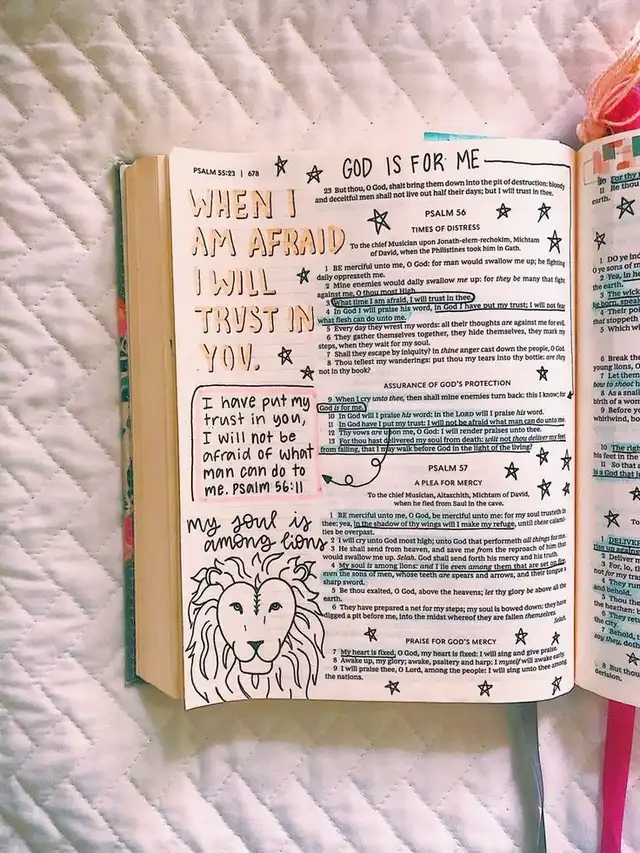 PSALM 55:23 | 678
GOD IS FOR ME
WHEN I
AM AFRAID
I WILL
TRUST IN
YOU.
I have put my
trust in you,
I will not be
afraid of what
man can do to
me. PSALM 56:11
my soul is
among lions
23 But thou, O God, shalt bring them down into the pit of destruction: bloody
and deceitful men shall not live out half their days; but I will trust in thee.
PSALM 56
TIMES OF DISTRESS
To the chief Musician upon Jonath-elem-rechokim, Michtam
of David, when the Philistines took him in Gath.
1 BE merciful unto me, O God: for man would swallow me up; he fighting
daily oppresseth me.
2 Mine enemies would daily swallow me up: for they be many that fight
against me, O thou most High.
3 What time I am afraid, I will trust in thee.
4 In God I will praise his word, in God I have put my trust; I will not fear
what flesh can do unto me.
5 Every day they wrest my words: all their thoughts are against me for evil.
6 They gather themselves together, they hide themselves, they mark my
steps, when they wait for my soul.
7 Shall they escape by iniquity? in thine anger cast down the people, O God.
8 Thou tellest my wanderings: put thou my tears into thy bottle: are they
not in thy book?
ASSURANCE OF GOD'S PROTECTION
9 When I cry unto thee, then shall mine enemies turn back: this I know; for
God is for me.
10 In God will I praise his word: in the LORD will I praise his word.
11 In God have I put my trust: I will not be afraid what man can do unto me.
12 Thy vows are upon me, O God: I will render praises unto thee.
13 For thou hast delivered my soul from death: wilt not thou deliver my feet
from falling, that I may walk before God in the light of the living?
PSALM 57
A PLEA FOR MERCY
To the chief Musician, Altaschith, Michtam of David,
when he fled from Saul in the cave.
1 BE merciful unto me, O God, be merciful unto me: for my soul trusteth in
thee: yea, in the shadow of thy wings will I make my refuge, until these calami-
ties be overpast.
2 I will cry unto God most high; unto God that performeth all things for me.
3 He shall send from heaven, and save me from the reproach of him that
would swallow me up. Selah. God shall send forth his mercy and his truth.
4 My soul is among lions: and I lie even among them that are set on fire,
even the sons of men, whose teeth are spears and arrows, and their tongue a
sharp sword.
5 Be thou exalted, O God, above the heavens; let thy glory be above all the
earth.
6 They have prepared a net for my steps; my soul is bowed down: they have
digged a pit before me, into the midst whereof they are fallen themselves.
Selah.
PRAISE FOR GOD'S MERCY
7 My heart is fixed, O God, my heart is fixed: I will sing and give praise.
8 Awake up, my glory; awake, psaltery and harp: I myself will awake early.
9 I will praise thee, O Lord, among the people: I will sing unto thee among
the nations.